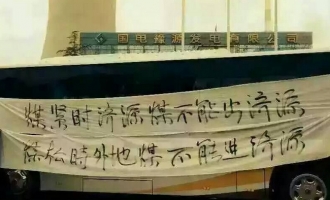 国电济源发电有限公司
煤紧时济源煤不能出济源
煤松時外地煤不能进济源